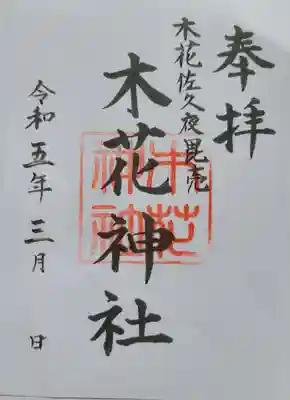 奉拝
木花佐久夜毘売
木花神社
木花
神社
令和五年三月 日